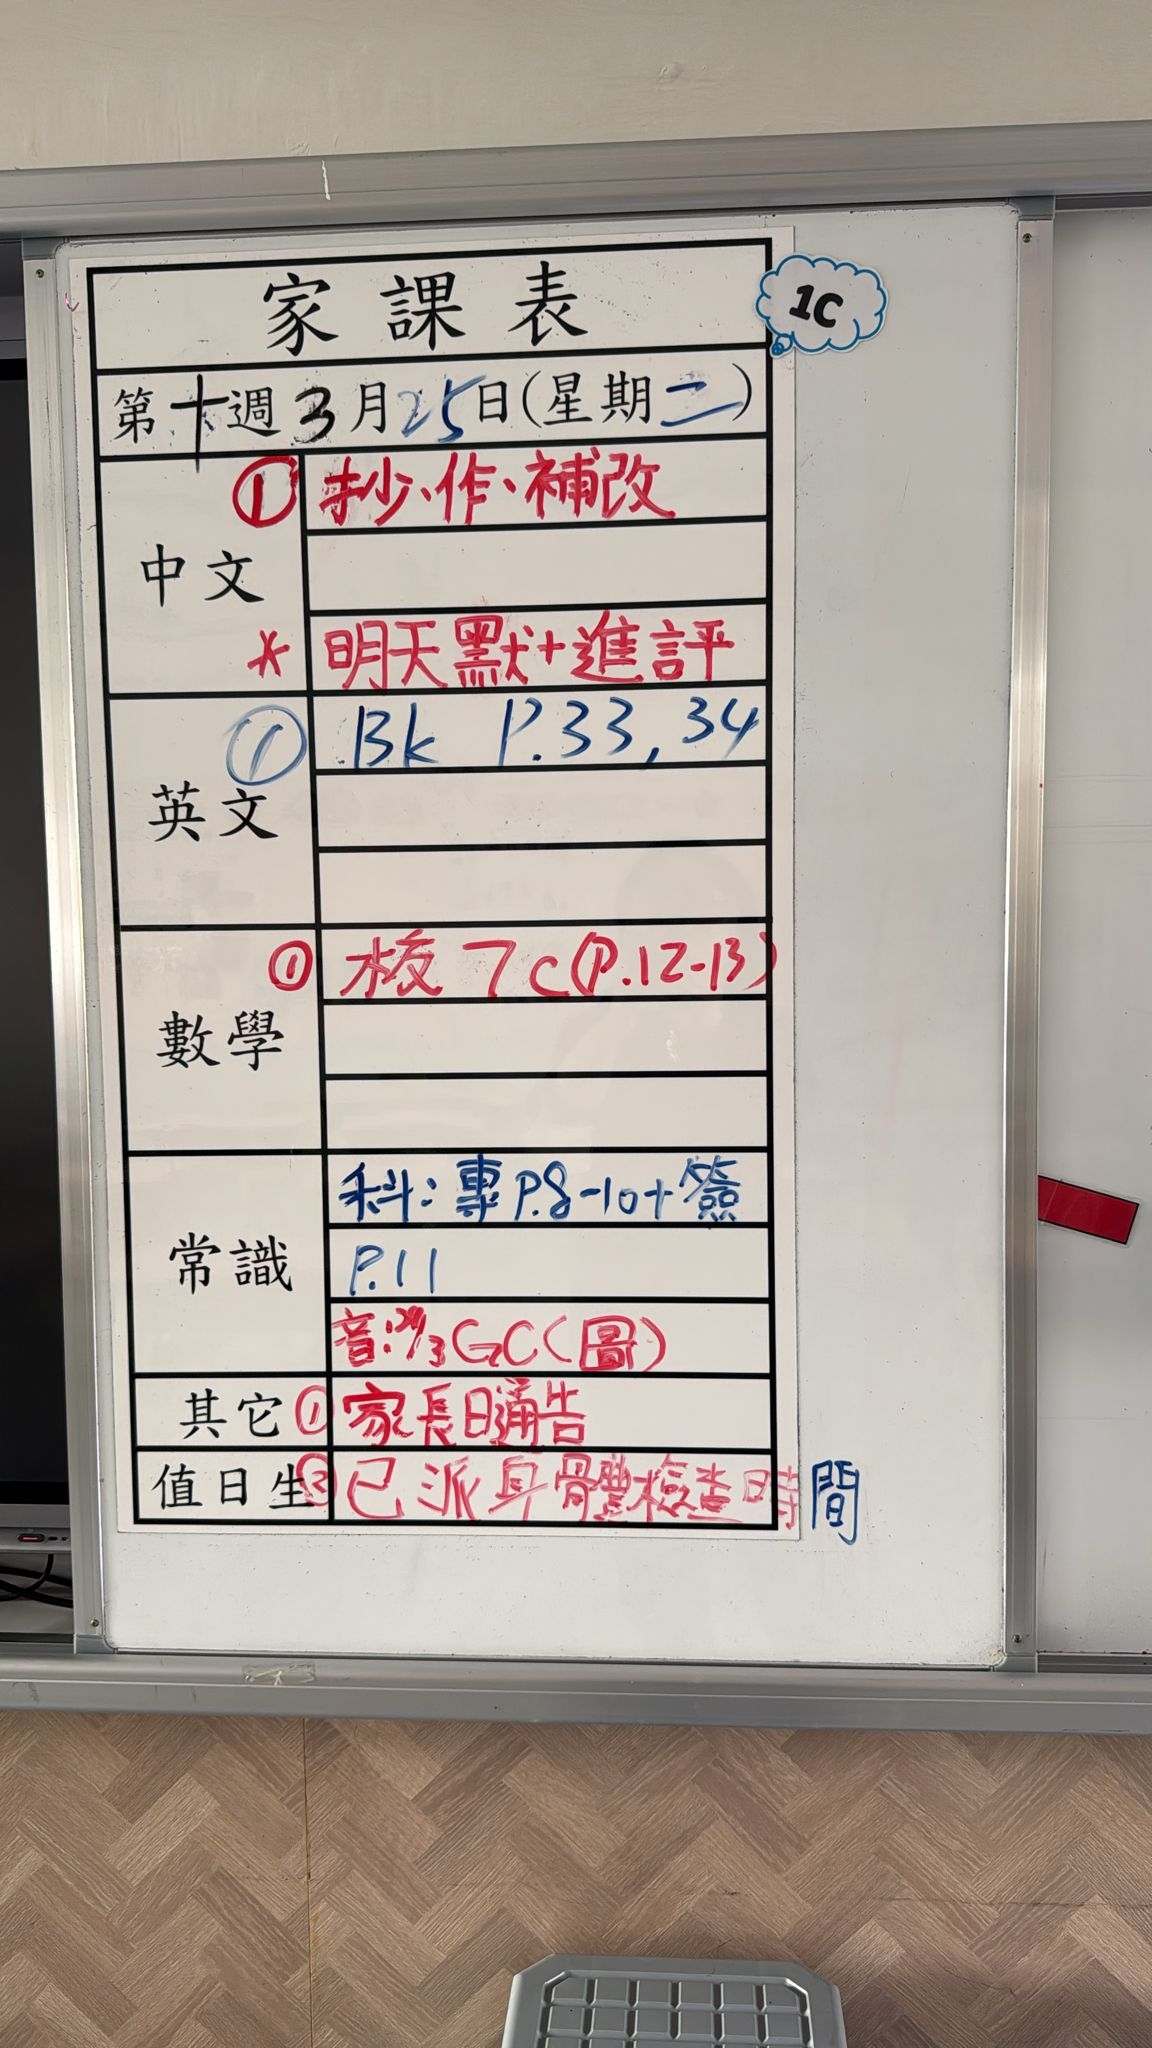 家課表
1C
第十週3月25日(星期二)
中文
① 抄、作、補改
* 明天默+進評
英文
① Bk P.33, 34
數學
① 板 7C(P.12-13)
常識
科：專P.8-10+簽
P.11
音: GC(圖)
其它 ① 家長日通告
值日生 ② 已派身體檢查時間